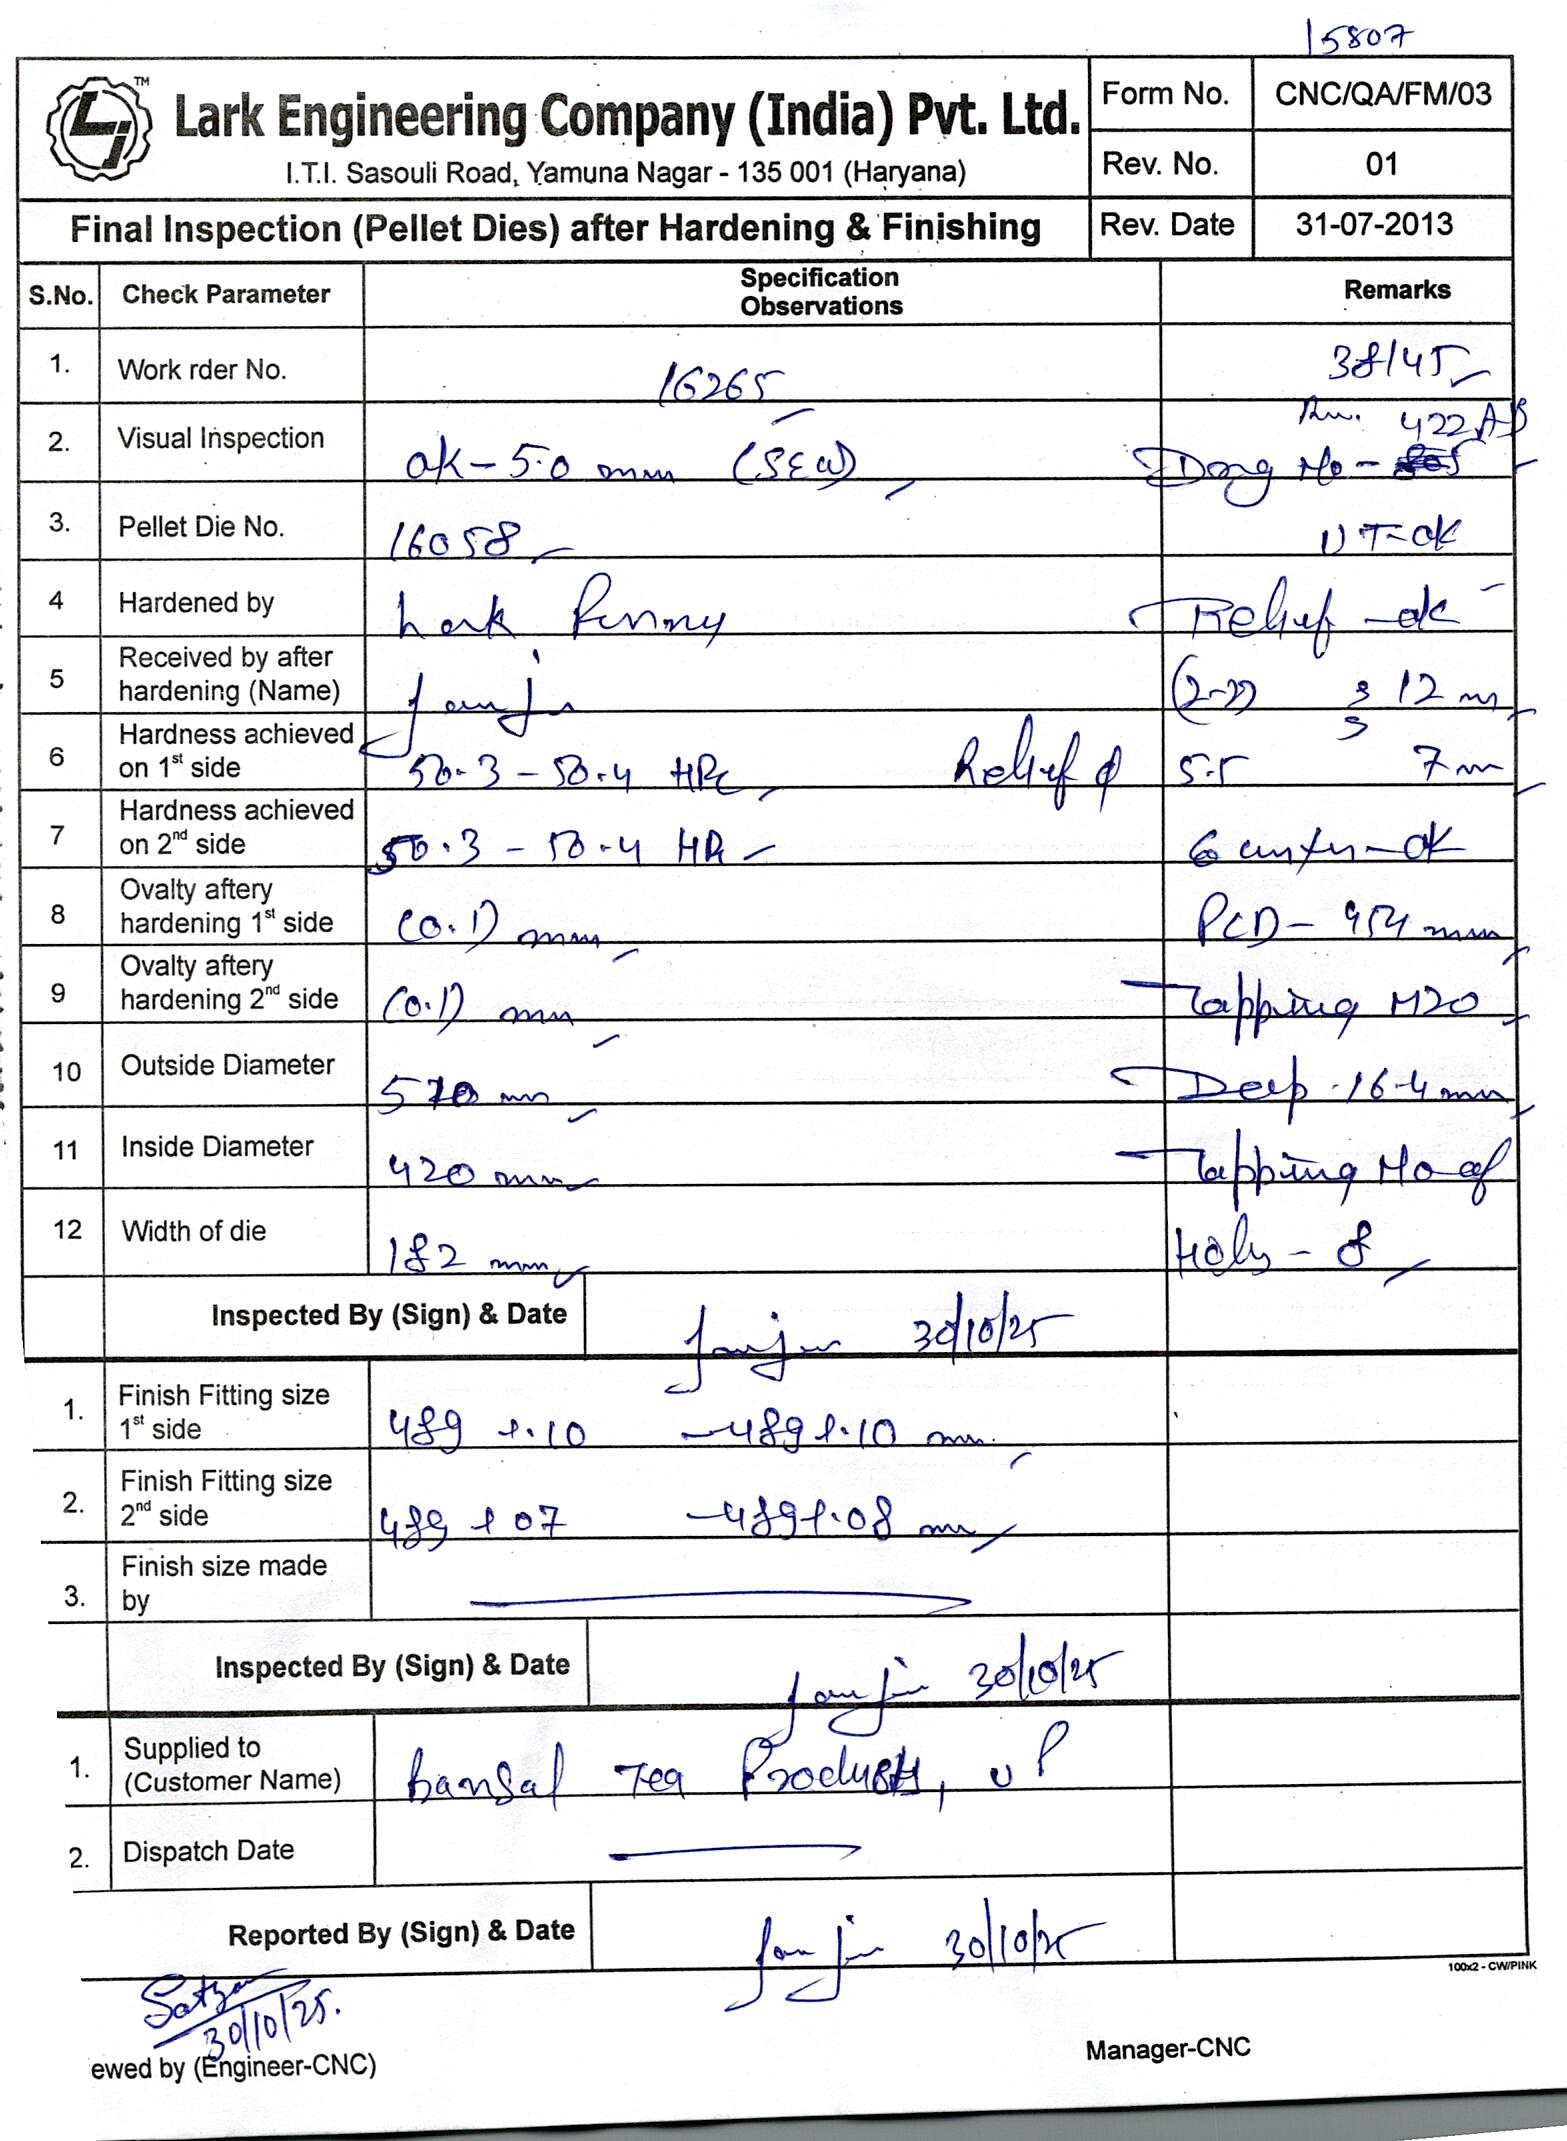 15807
TM
Lark Engineering Company (India) Pvt. Ltd.
I.T.I. Sasouli Road, Yamuna Nagar - 135 001 (Haryana)
Form No. CNC/QA/FM/03
Rev. No. 01
Final Inspection (Pellet Dies) after Hardening & Finishing
Rev. Date 31-07-2013
S.No. Check Parameter Specification Observations Remarks
1. Work rder No. 16265 38/45
422AB
2. Visual Inspection ok - 5.0 mm (SEW) Drg No -
3. Pellet Die No. 16058 UT = ok
4 Hardened by Lark Relief - ok
5 Received by after hardening (Name) 12 m
6 Hardness achieved on 1st side 50.3 - 50.4 HRc Relief ϕ 5.5 7 m
7 Hardness achieved on 2nd side 50.3 - 50.4 HRc - ok
8 Ovalty aftery hardening 1st side (0.1) mm PCD - 454 mm
9 Ovalty aftery hardening 2nd side (0.1) mm Tapping M20
10 Outside Diameter 570 mm Deep 16.4 mm
11 Inside Diameter 420 mm Tapping No of
12 Width of die 182 mm Holes - 8
Inspected By (Sign) & Date 30/10/25
1. Finish Fitting size 1st side 489 +.10 - 489 +.10 mm
2. Finish Fitting size 2nd side 489 + 07 - 489 +.08 mm
3. Finish size made by
Inspected By (Sign) & Date 30/10/25
1. Supplied to (Customer Name) bansal Tea Products, UP
2. Dispatch Date
Reported By (Sign) & Date 30/10/25
100x2 - CW/PINK
30/10/25.
ewed by (Engineer-CNC)
Manager-CNC